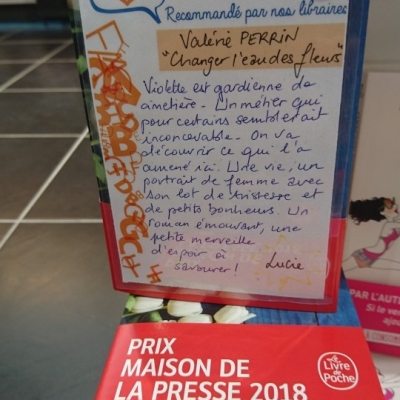 Recommandé par nos libraires
Valérie PERRIN
"Changer l'eau des fleurs"
Violette est gardienne de
cimetière - Un métier qui
pour certains semblerait
inconcevable - On va
découvrir ce qui l'a
amené ici. Une vie, un
portrait de femme avec
son lot de tristesse et
de petits bonheurs. Un
roman émouvant, une
petite merveille
d'espoir à
savourer !
Lucie
PAR L'AUT
Si le ve
ajou
PRIX
MAISON DE
LA PRESSE 2018
Le
Livre
de
Poche